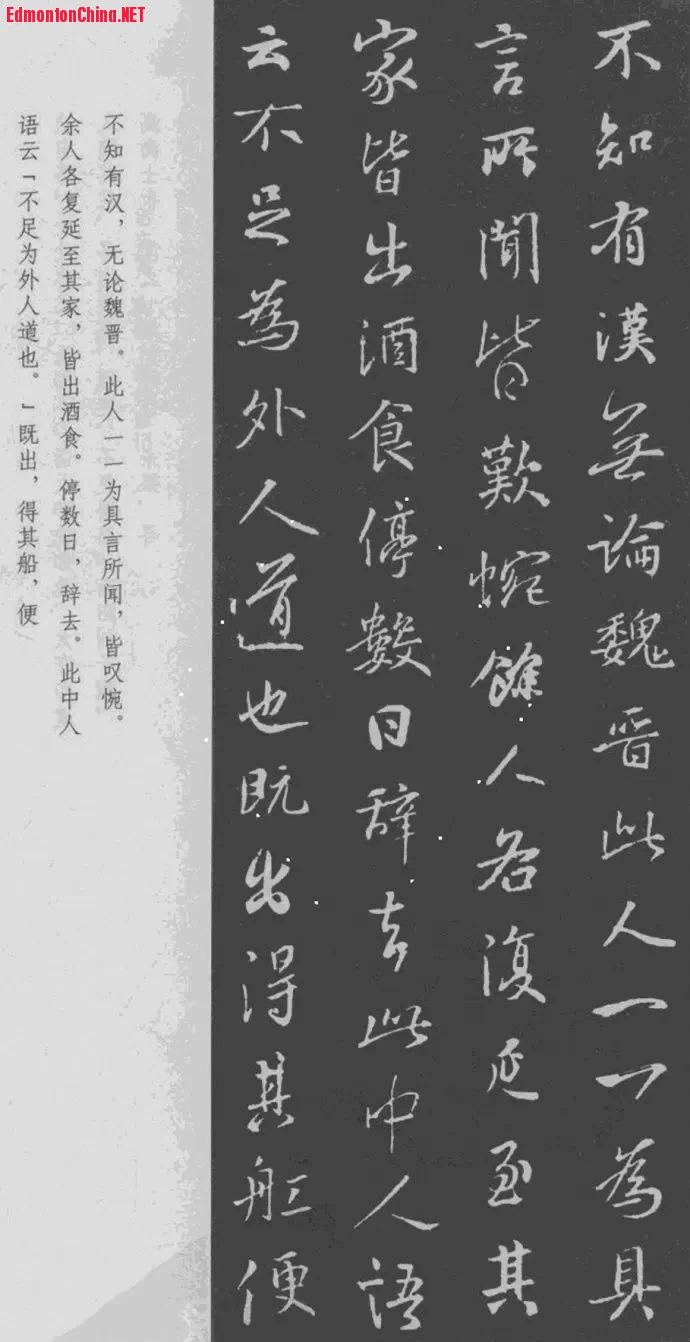 EdmontonChina.NET
不知有漢無論魏晋此人一一為具
言所聞皆歎惋餘人各復延至其
家皆出酒食停數日辞去此中人語
云不足為外人道也既出得其舡便
不知有汉，无论魏晋。此人一一为具言所闻，皆叹惋。
余人各复延至其家，皆出酒食。停数日，辞去。此中人
语云「不足为外人道也。」既出，得其船，便